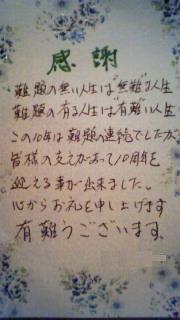 感謝
難題の無い人生は"無難"な人生
難題の有る人生は"有難"い人生
この10年は難題の連続でしたが
皆様の支えがあって10周年を
迎える事が出来ました。
心からお礼を申し上げます
有難うございます。